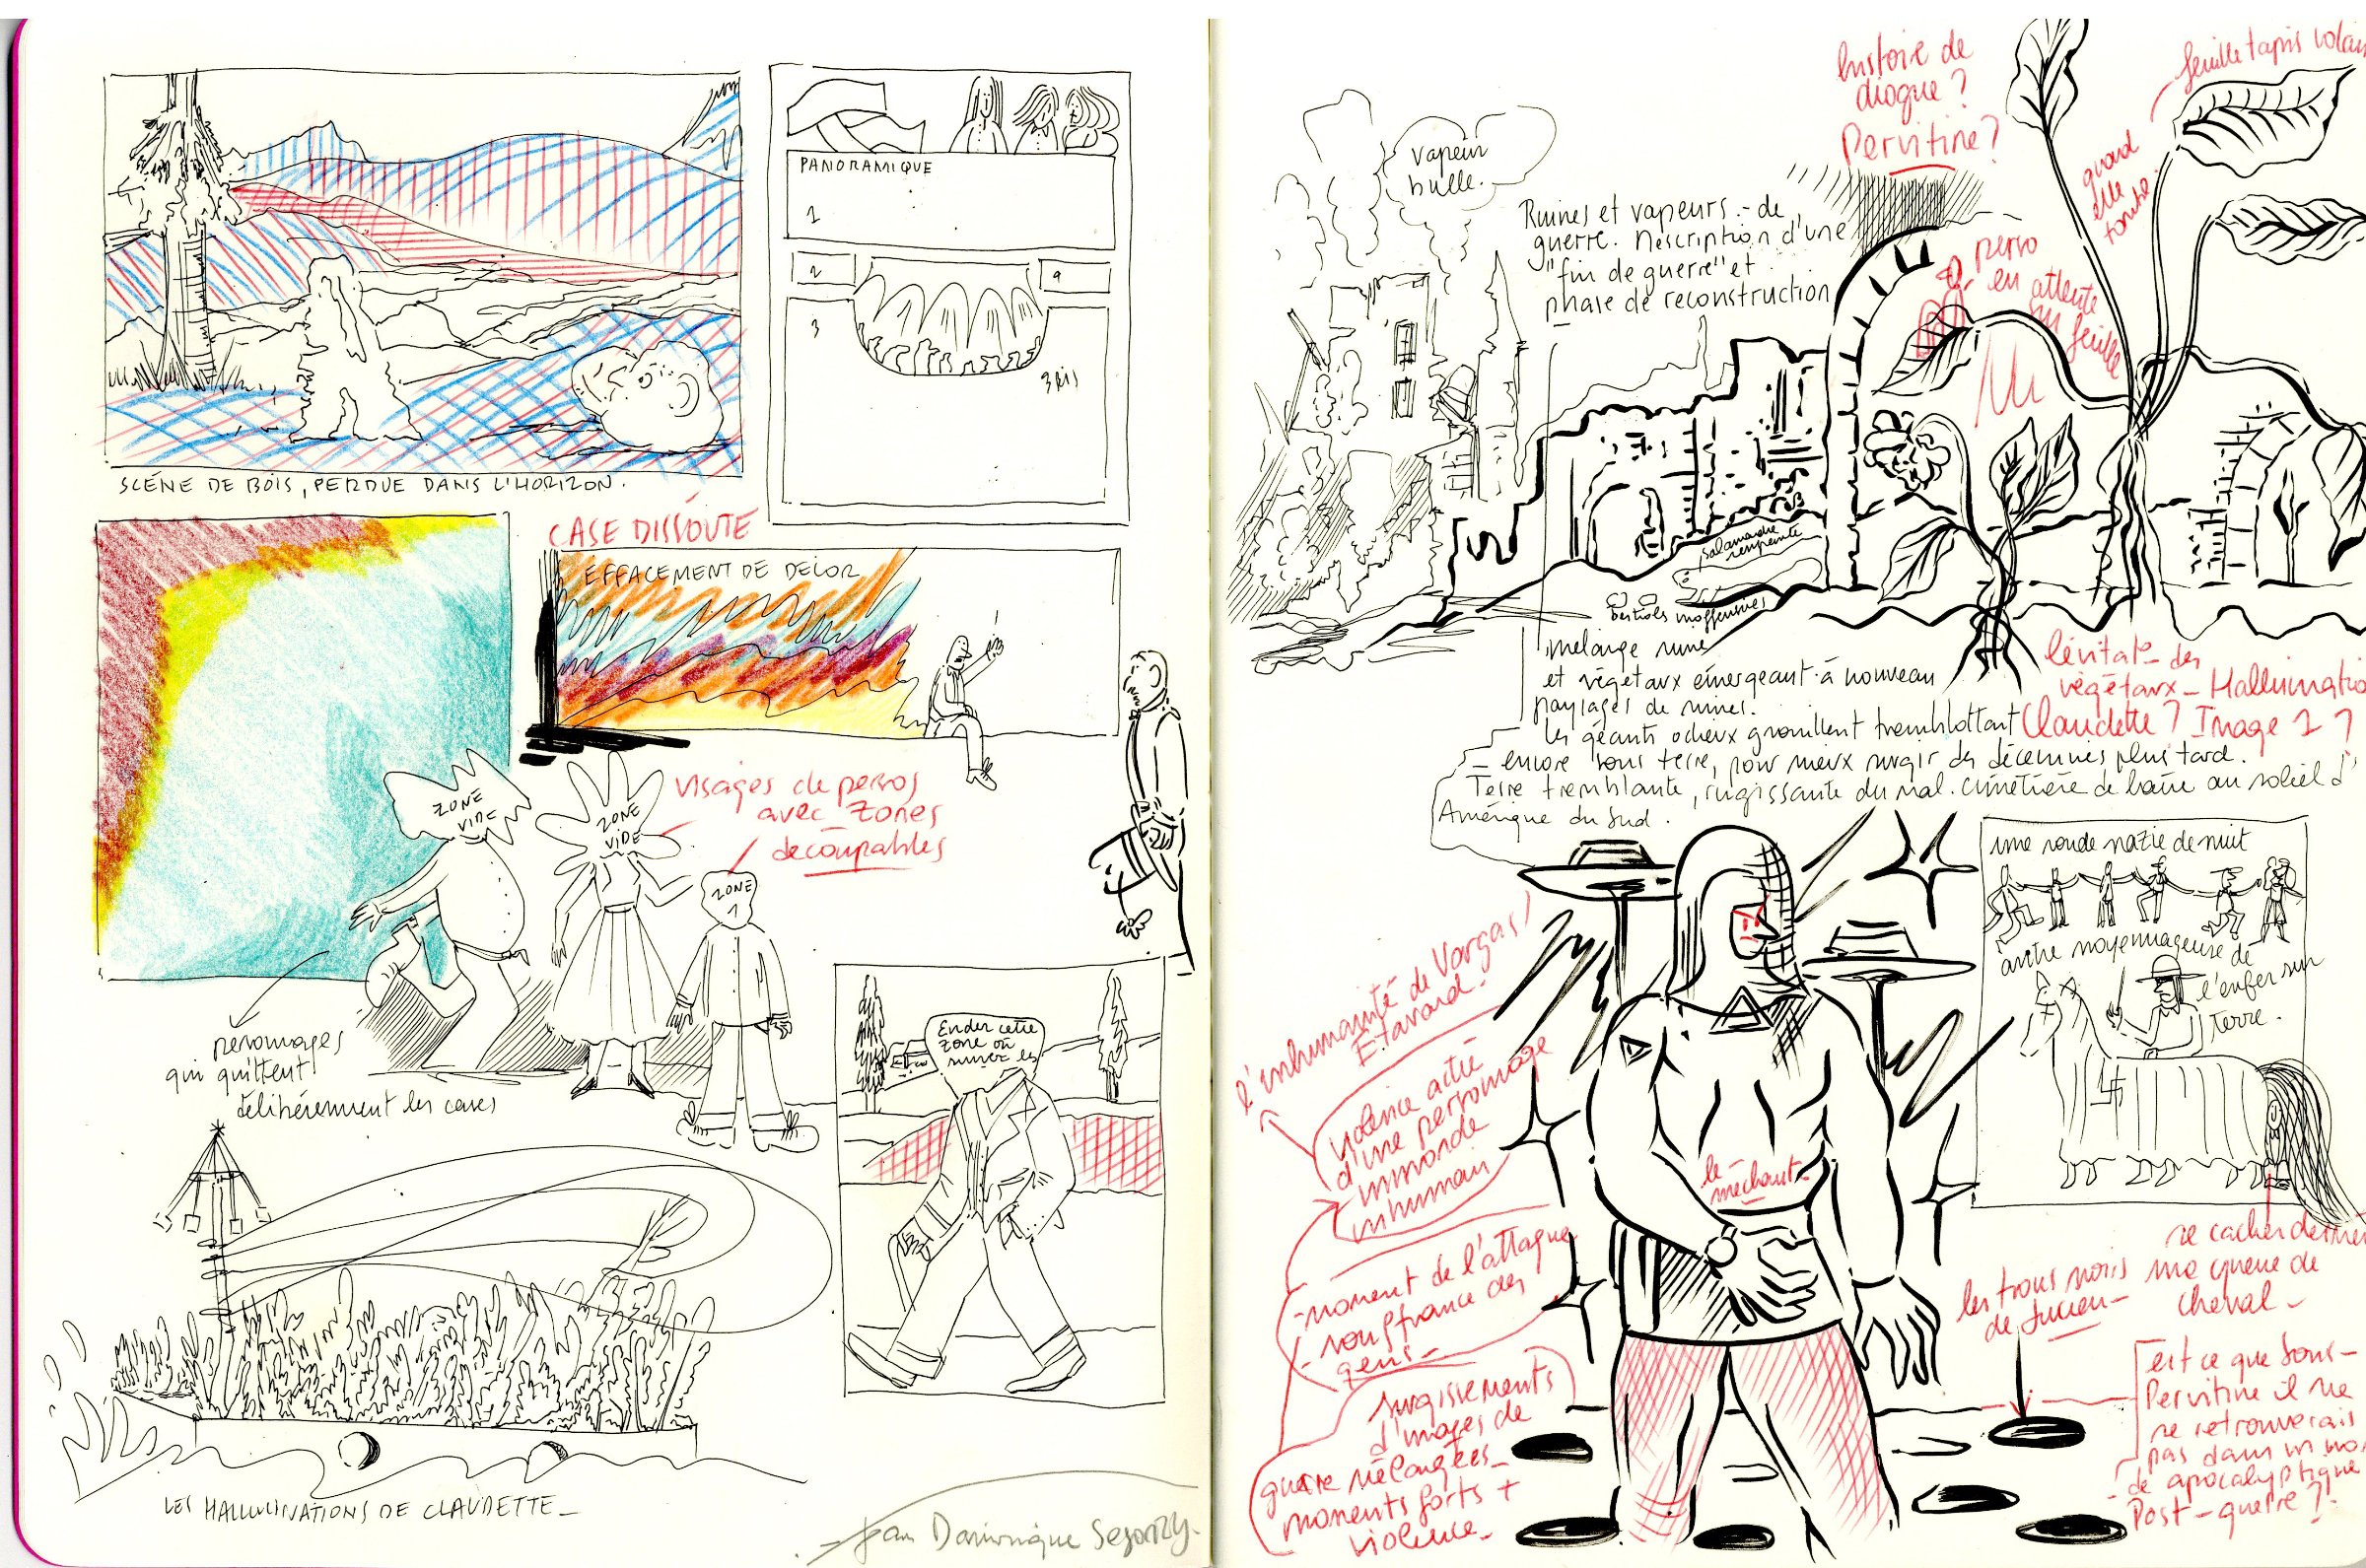 SCÈNE DE BOIS, PERDUE DANS L'HORIZON.
PANORAMIQUE
1
2
3
4
3 BIS
CASE DISSOUTE
EFFACEMENT DE DÉCOR
ZONE
VIDE
ZONE
VIDE
ZONE
1
visages de persos
avec zones
découpables
personnages
qui quittent
délibérément les cases
Evider cette
zone ou
suivez les
LES HALLUCINATIONS DE CLAUDETTE_
Jean Dominique Segonzy.
vapeur
bulle.
histoire de
drogue ?
Pervitine ?
feuille tapis volan
quand
elle
tombe.
Ruines et vapeurs.- de
guerre. Description d'une
"fin de guerre" et
phase de reconstruction
perso
en attente
sur feuille
salamandre
rampante
bestioles inoffensives
mélange ruine
et végétaux émergeant à nouveau
paysages de ruines.
les géants odieux grouillent tremblottant
encore sous terre, pour mieux surgir des décennies plus tard.
Terre tremblante, rugissante du mal. Cimetière de haine au soleil d'
Amérique du Sud.
lévitat° des
végétaux_ Hallucinatio
Claudette ? Image 1 ?
une ronde nazie de nuit
autre moyennageuse de
l'enfer sur
terre.
l'inhumanité de Vargas !
Etavard.
violence
d'une personnage
immonde
inhumain
le
méchant
-moment de l'attaque
-souffrance des
gens_
surgissements
d'images de
guerre mélangées_
moments forts +
violence_
les trous noirs
de Lucien_
se cacher derrière
ma queue de
cheval_
est ce que sous-
Pervitine il ne
se retrouverais
pas dans un mon
de apocalyptique
Post-guerre ?